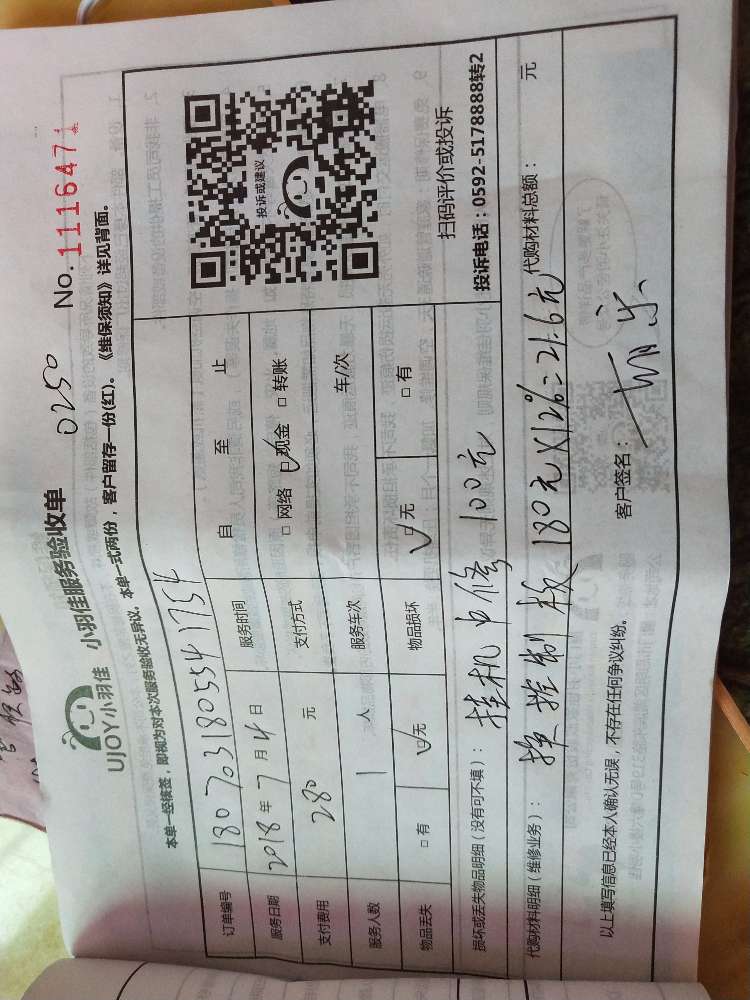 0250
UJOY小羽佳 小羽佳服务验收单 No. 1116471
本单一经核签，即视为对本次服务验收无异议。本单一式两份，客户留存一份(红)。《维保须知》详见背面。
订单编号 180703180554 1754
服务日期 2018年7月4日 服务时间 自 至 止
支付费用 280 元 支付方式 □网络 ☑现金 □转账
服务人数 1 人 服务车次 车/次
物品丢失 □有 ☑无 物品损坏 ☑无 □有
投诉或建议
扫码评价或投诉
投诉电话：0592-5178888转2
损坏或丢失物品明细（没有可不填）： 挂机中修 100元
代购材料明细（维修业务）： 换控制板 180元X12%=21.6元 代购材料总额： 元
以上填写信息已经本人确认无误，不存在任何争议纠纷。 客户签名：